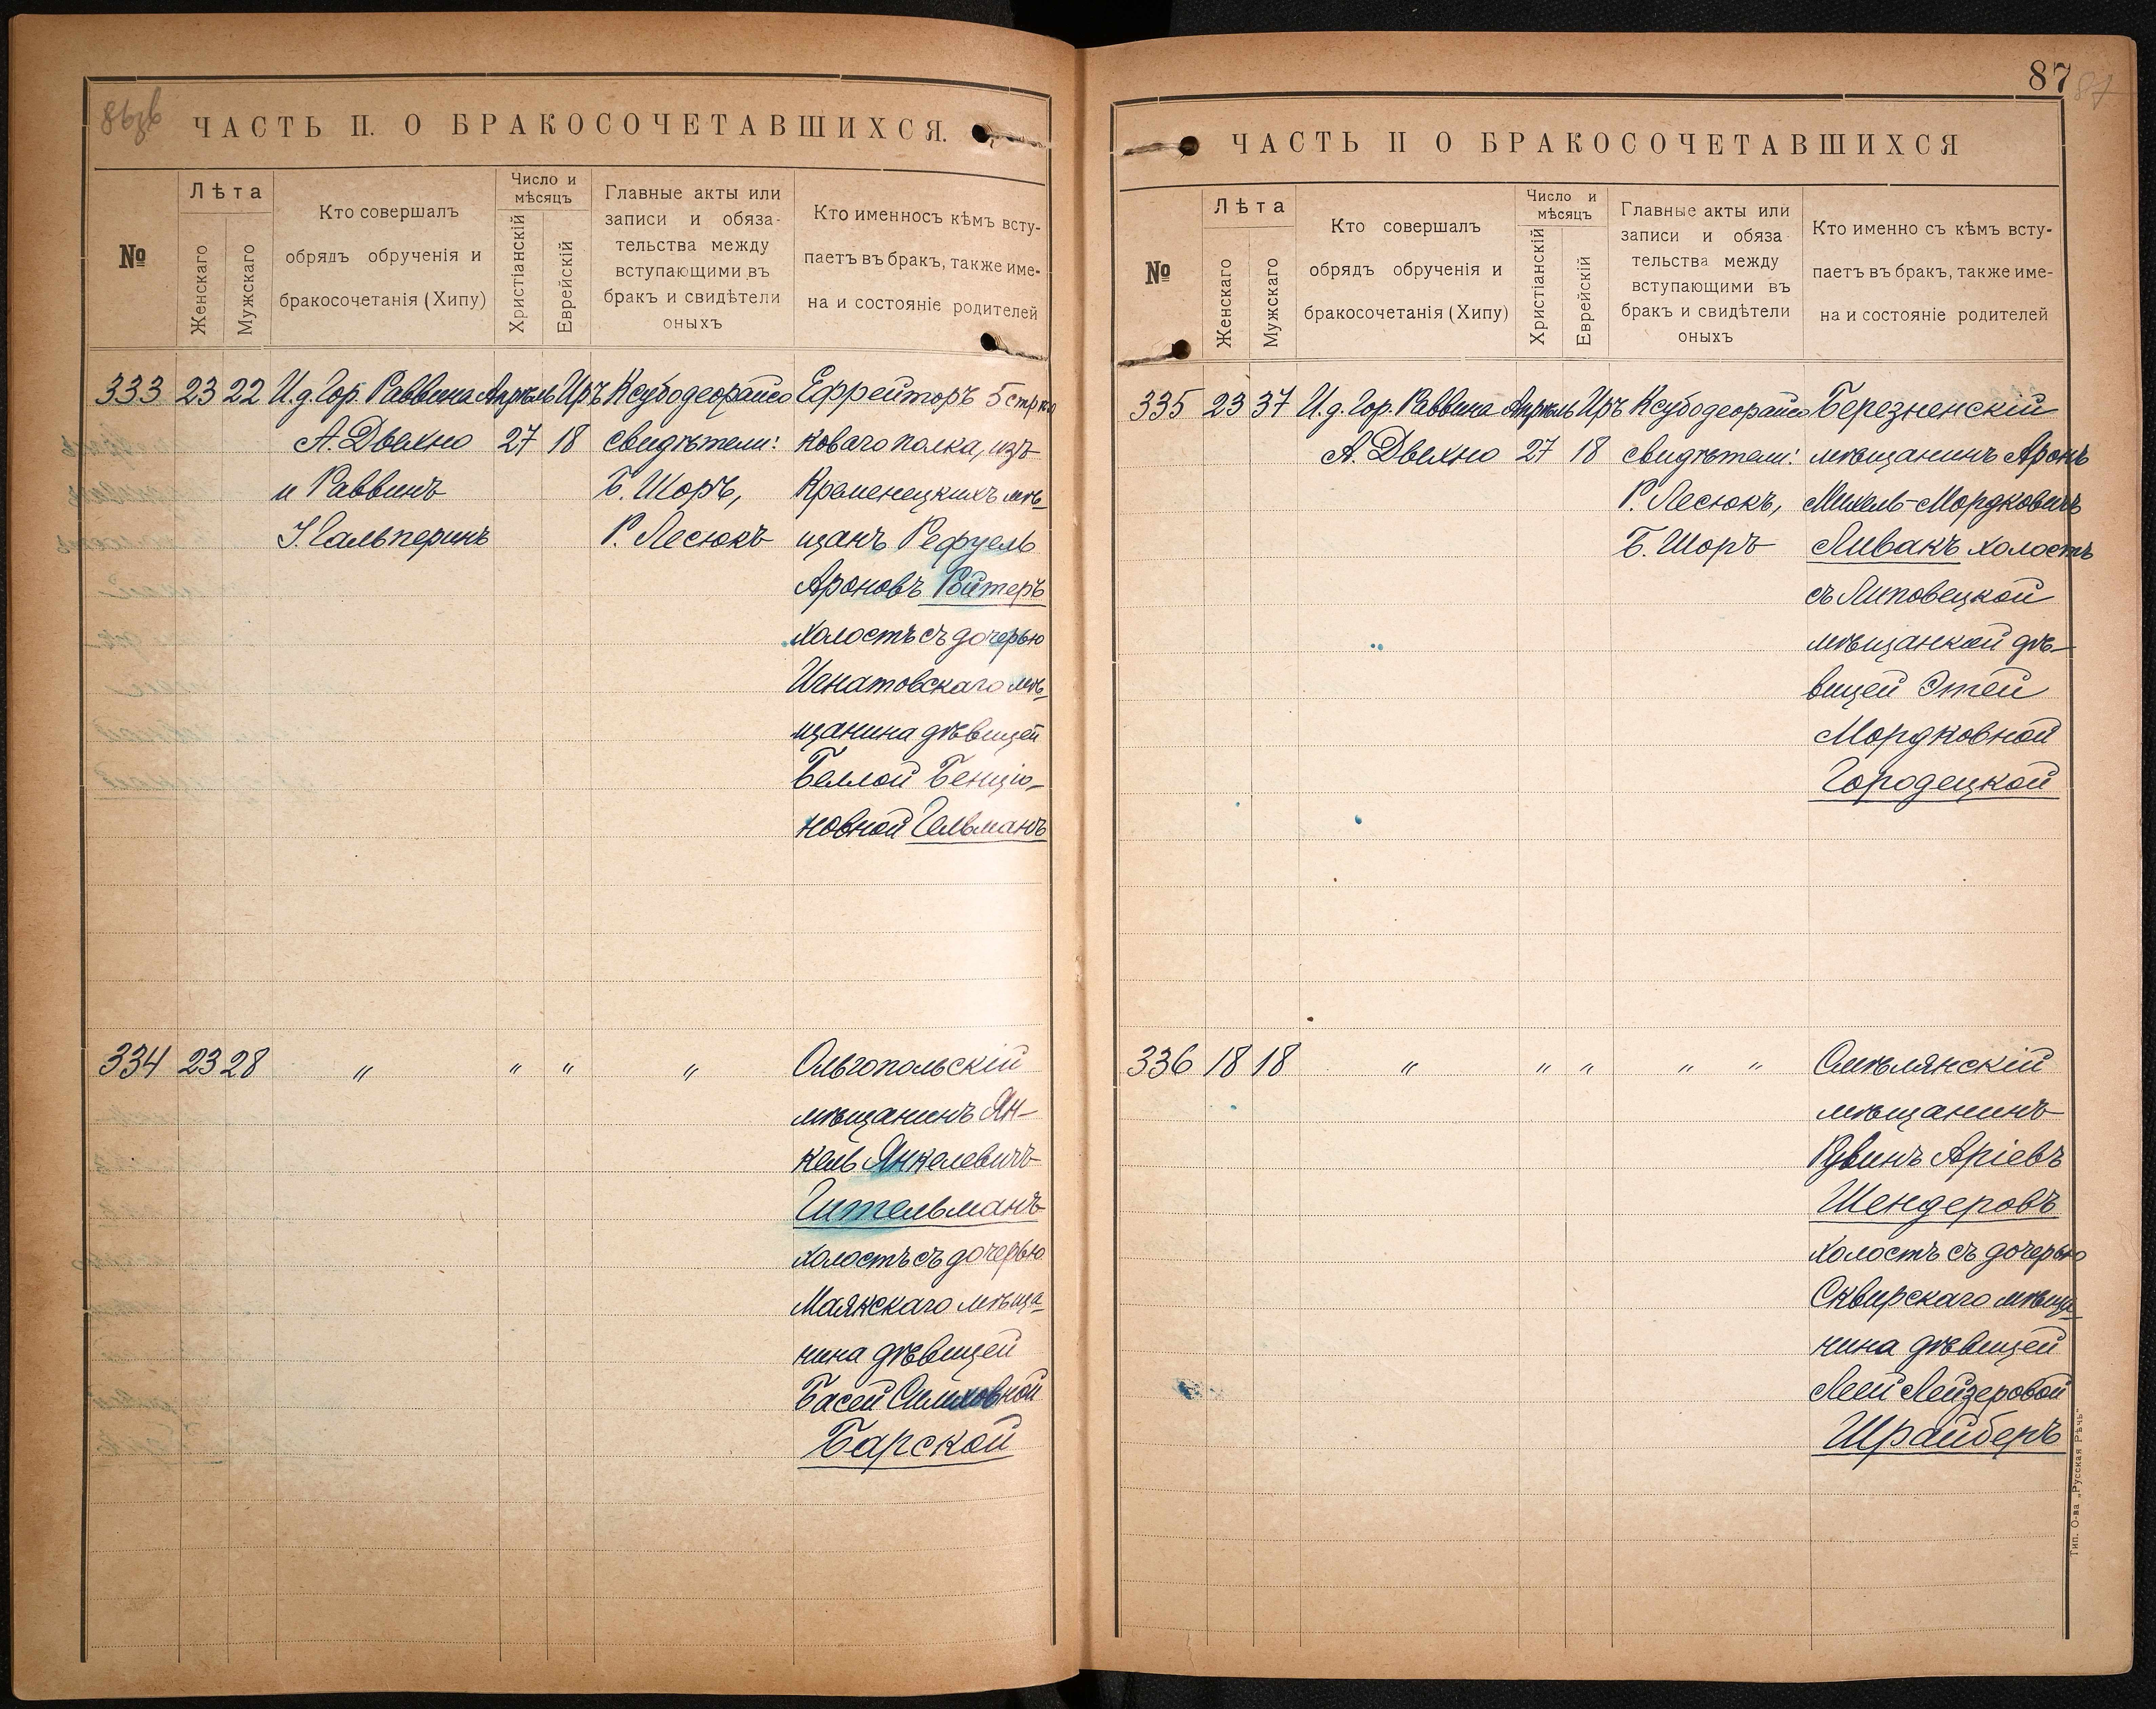 ЧАСТЬ II. О БРАКОСОЧЕТАВШИХСЯ.
№
Лѣта
Женскаго
Мужскаго
Кто совершалъ
обрядъ обрученія и
бракосочетанія (Хипу)
Число и
мѣсяцъ
Христіанскій
Еврейскій
Главные акты или
записи и обяза-
тельства между
вступающими въ
бракъ и свидѣтели
оныхъ
Кто именносъ кѣмъ всту-
паетъ въ бракъ, также име-
на и состояніе родителей
333 23 22
И. д. Гор. Раввина
А. Двехно
и Раввинъ
Гальперинъ
Апрѣль
27
Иръ
18
Ксубодеорайсо
свидѣтели:
Б. Шоръ,
Р. Лесюкъ
Ефрейторъ 5 стрѣл
коваго полка, изъ
Кременецкихъ мѣ-
щанъ Рефуель
Ароновъ Ройтеръ
холостъ съ дочерью
Игнатовскаго мѣ-
щанина дѣвицей
Беллой Бенціо-
новной Гельманъ
334 23 28 " " " "
Ольгопольскій
мѣщанинъ Ян-
кель Янкелевичъ
Гительманъ
холостъ съ дочерью
Маянскаго мѣща-
нина дѣвицей
Басей
Барской
87
87
ЧАСТЬ II О БРАКОСОЧЕТАВШИХСЯ
№
Лѣта
Женскаго
Мужскаго
Кто совершалъ
обрядъ обрученія и
бракосочетанія (Хипу)
Число и
мѣсяцъ
Христіанскій
Еврейскій
Главные акты или
записи и обяза
тельства между
вступающими въ
бракъ и свидѣтели
оныхъ
Кто именно съ кѣмъ всту-
паетъ въ бракъ, также име-
на и состояніе родителей
335 23 37
И. д. Гор. Раввина
А. Двехно
Апрѣль
27
Иръ
18
Ксубодеорайсо
свидѣтели:
Р. Лесюкъ,
Б. Шоръ
Березненскій
мѣщанинъ Аронъ
Михель-Мордковичъ
Ливакъ холостъ
съ Липовецкой
мѣщанкой дѣ-
вицей Этей
Мордковной
Городецкой
336 18 18 " " " " "
Смѣлянскій
мѣщанинъ
Рувинъ Аріевъ
Шендеровъ
холостъ съ дочерью
Сквирскаго мѣща-
нина дѣвицей
Леей Лейзеровой
Шрайберъ
Тип. О-ва „Русская Рѣчь“